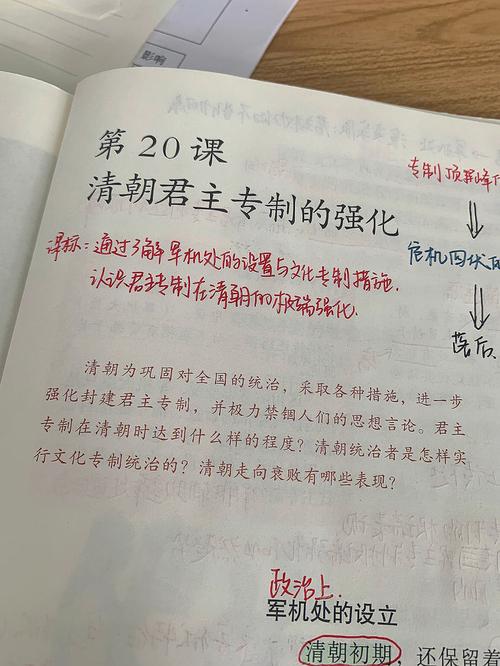 影响
第20课
清朝君主专制的强化
专制顶峰
危机四伏
落后
课标：通过了解军机处的设置与文化专制措施.
认识君主专制在清朝的极端强化.
清朝为巩固对全国的统治，采取各种措施，进一步
强化封建君主专制，并极力禁锢人们的思想言论。君主
专制在清朝时达到什么样的程度？清朝统治者是怎样实
行文化专制统治的？清朝走向衰败有哪些表现？
政治上.
军机处的设立
清朝初期 还保留着